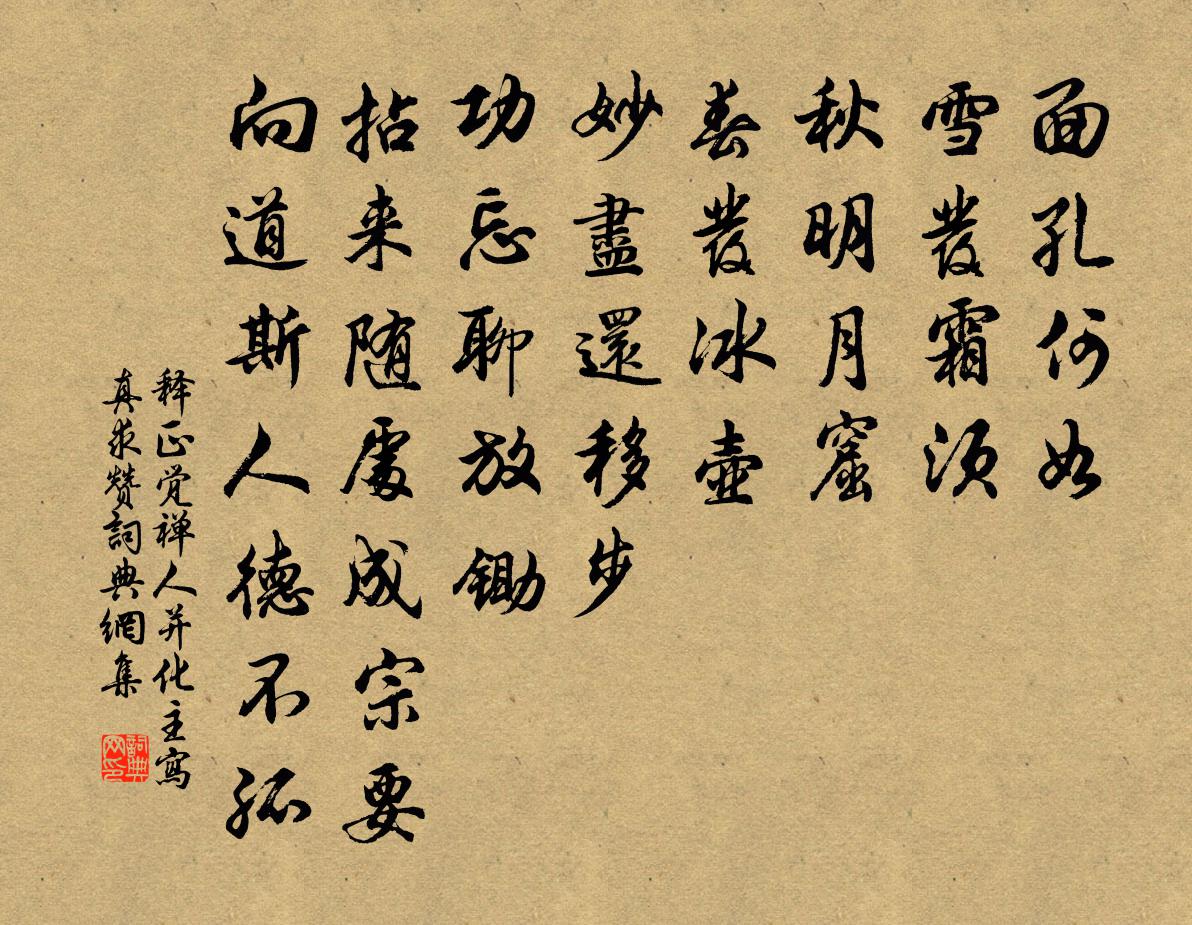 面孔何如
雪發霜须
秋明月窟
春發冰壺
妙盡還移步
功忘聊放锄
拈来随處成宗要
向道斯人德不孤
释正觉禅人并化主寫
真求赞詞典網集
詞典
网印